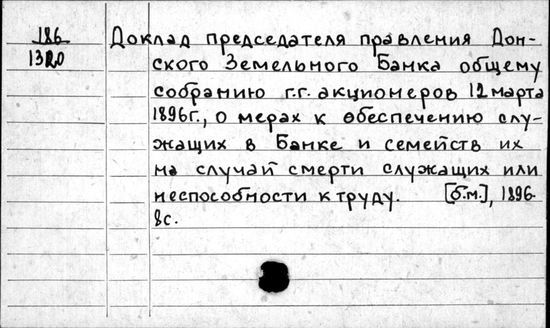 186
1320
Доклад председателя правления Дон-
ского Земельного Банка общему
собранию г.г. акционеров 12 марта
1896г., о мерах к обеспечению слу-
жащих в Банке и семейств их
на случай смерти служащих или
неспособности к труду. [б.м.], 1896.
8с.